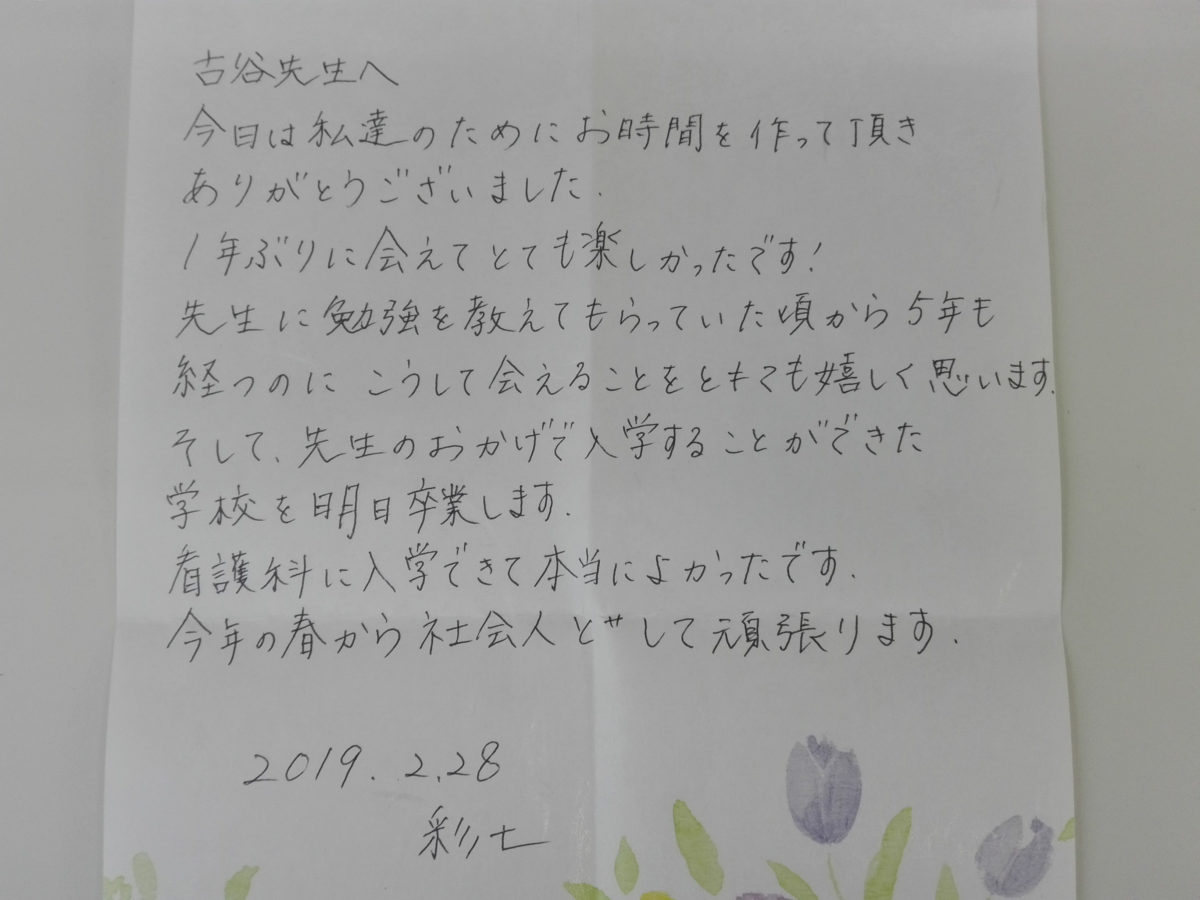 古谷先生へ
今日は私達のためにお時間を作って頂き
ありがとうございました.
1年ぶりに会えてとても楽しかったです!
先生に勉強を教えてもらっていた頃から5年も
経つのにこうして会えることをとても嬉しく思います.
そして、先生のおかげで入学することができた
学校を明日卒業します.
看護科に入学できて本当によかったです.
今年の春から社会人として頑張ります.
2019.2.28
彩七